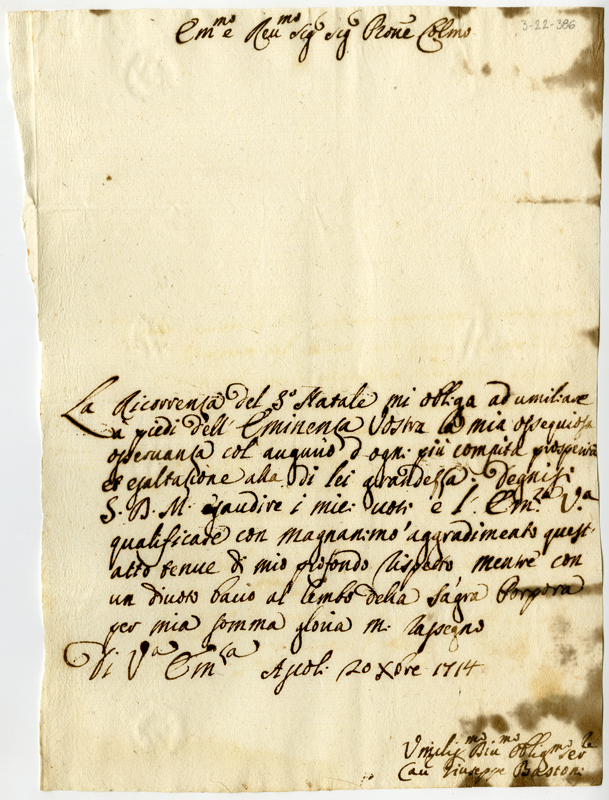 3-22-386
Em.mo e Reu.mo Sig Sig Prone Colmo
La Ricorrenza del S.o Natale mi obliga ad umiliare
a piedi dell' Eminenza Vostra la mia osseguiosa
osseruanza col augurio d ogni più compita prosperità
et esaltazione alla di lei grandezza: Degnisi
S. D. M. esaudire i miei uoti e l' Em.za V.a
qualificare con magnanimo aggradimento quest'
atto tenue di mio profondo Rispetto mentre con
un diuoto bacio al lembo della Sagra Porpora
per mia somma gloria mi rassegno
Di V.a Em.za Ascoli 20 Xbre 1714
Vmilis.mo Diu.mo Oblig.mo Ser.le
Cau Giuseppe Bastoni